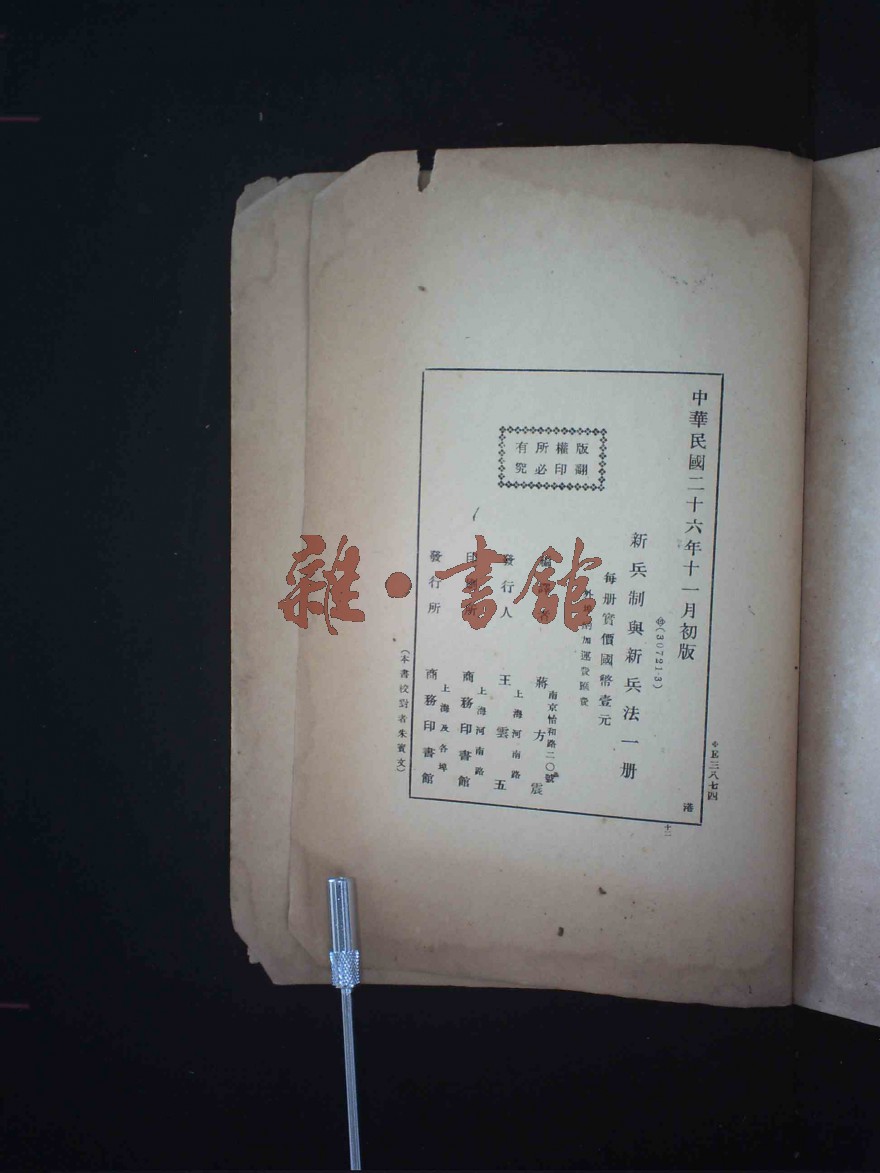 中華民國二十六年十一月初版
＊E三八七四
㊥(30721·3)
新兵制與新兵法一册
每册實價國幣壹元
外埠酌加運費匯費
版權所有
翻印必究
編譯者
南京怡和路二〇號
蔣方震
發行人
上海河南路
王雲五
印刷所
上海河南路
商務印書館
發行所
上海及各埠
商務印書館
(本書校對者朱寶文)
港
十二
雜·書館